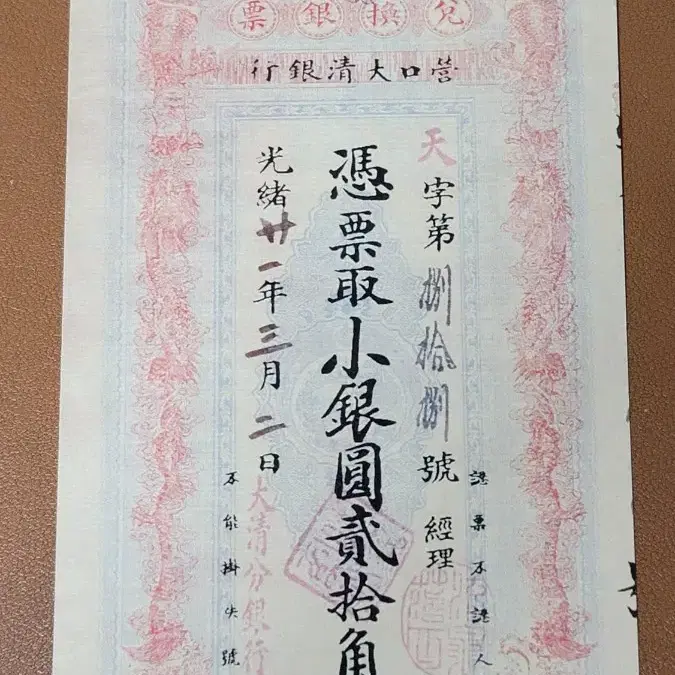 兌換銀票
營口大清銀行
認票不認人
天字第捌拾捌號 經理
憑票取小銀圓貳拾角
光緒廿一年三月二日
大清分銀行
不能掛失號